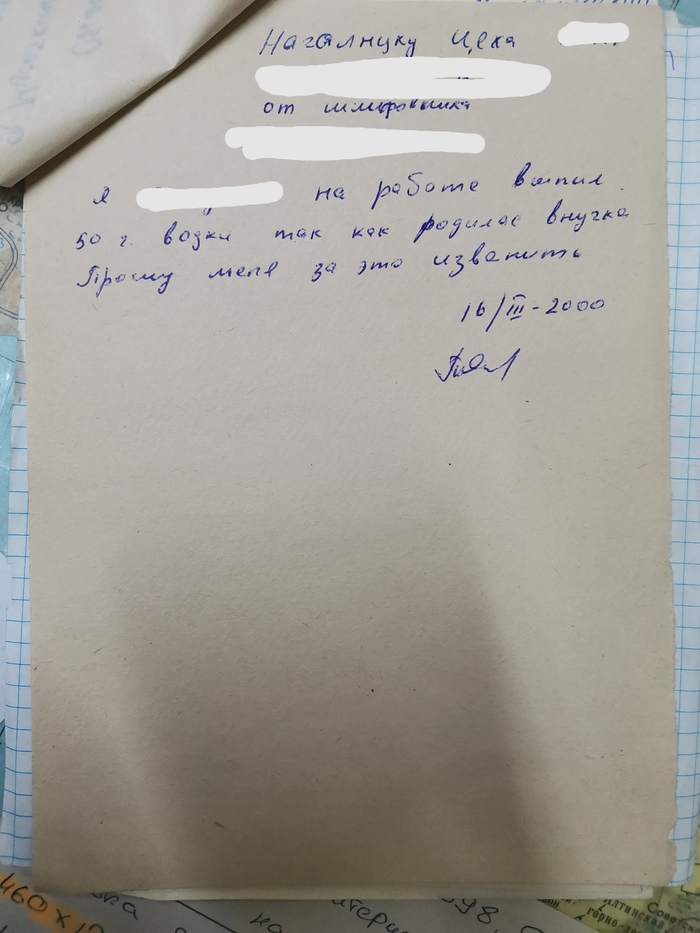 Начальнику Цеха
от шлифовшика
Я на работе выпил
50 г. водки так как родилас внучка
Прошу меня за это изванить
16/III-2000
460 х 1
вка
на
териа
98,
Сове
ЛТИНСКИЙ
ГОРНО-